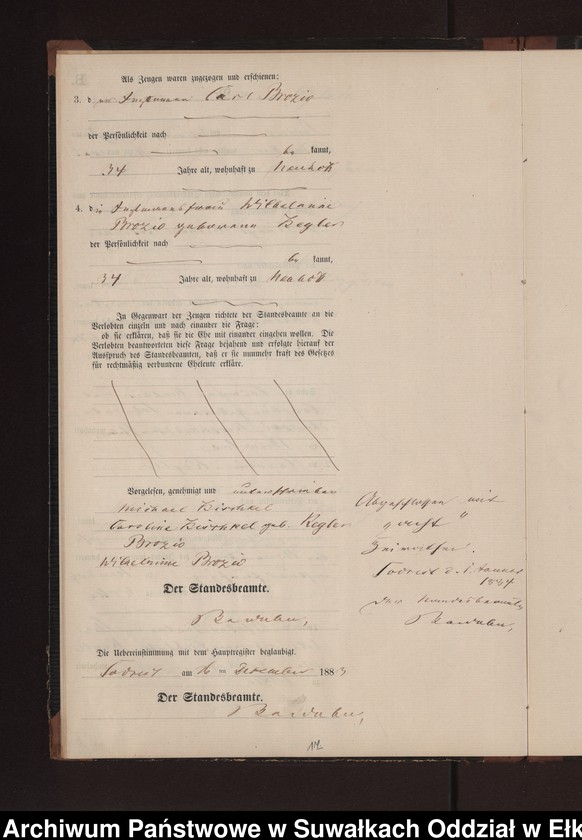 Als Zeugen waren zugezogen und erschienen:
3. der Instmann Carl Brozio
der Persönlichkeit nach
be kannt,
34 Jahre alt, wohnhaft zu Neuhoff
4. die Instmannsfrau Wilhelmine
Brozio geborene Kegler
der Persönlichkeit nach
be kannt,
34 Jahre alt, wohnhaft zu Neuhoff
In Gegenwart der Zeugen richtete der Standesbeamte an die
Verlobten einzeln und nach einander die Frage:
ob sie erklären, daß sie die Ehe mit einander eingehen wollen. Die
Verlobten beantworteten diese Frage bejahend und erfolgte hierauf der
Ausspruch des Standesbeamten, daß er sie nunmehr kraft des Gesetzes
für rechtmäßig verbundene Eheleute erkläre.
Vorgelesen, genehmigt und unterschrieben
Michael
Caroline geb. Kegler
Brozio
Wilhelmine Brozio
Der Standesbeamte.
Die Uebereinstimmung mit dem Hauptregister beglaubigt.
am Dezember 1883
Der Standesbeamte.
Abgeschlossen mit
„acht“
Heirathen.
d. 1. Januar
1884
Der Standesbeamte
112
Archiwum Państwowe w Suwałkach Oddział w Ełk